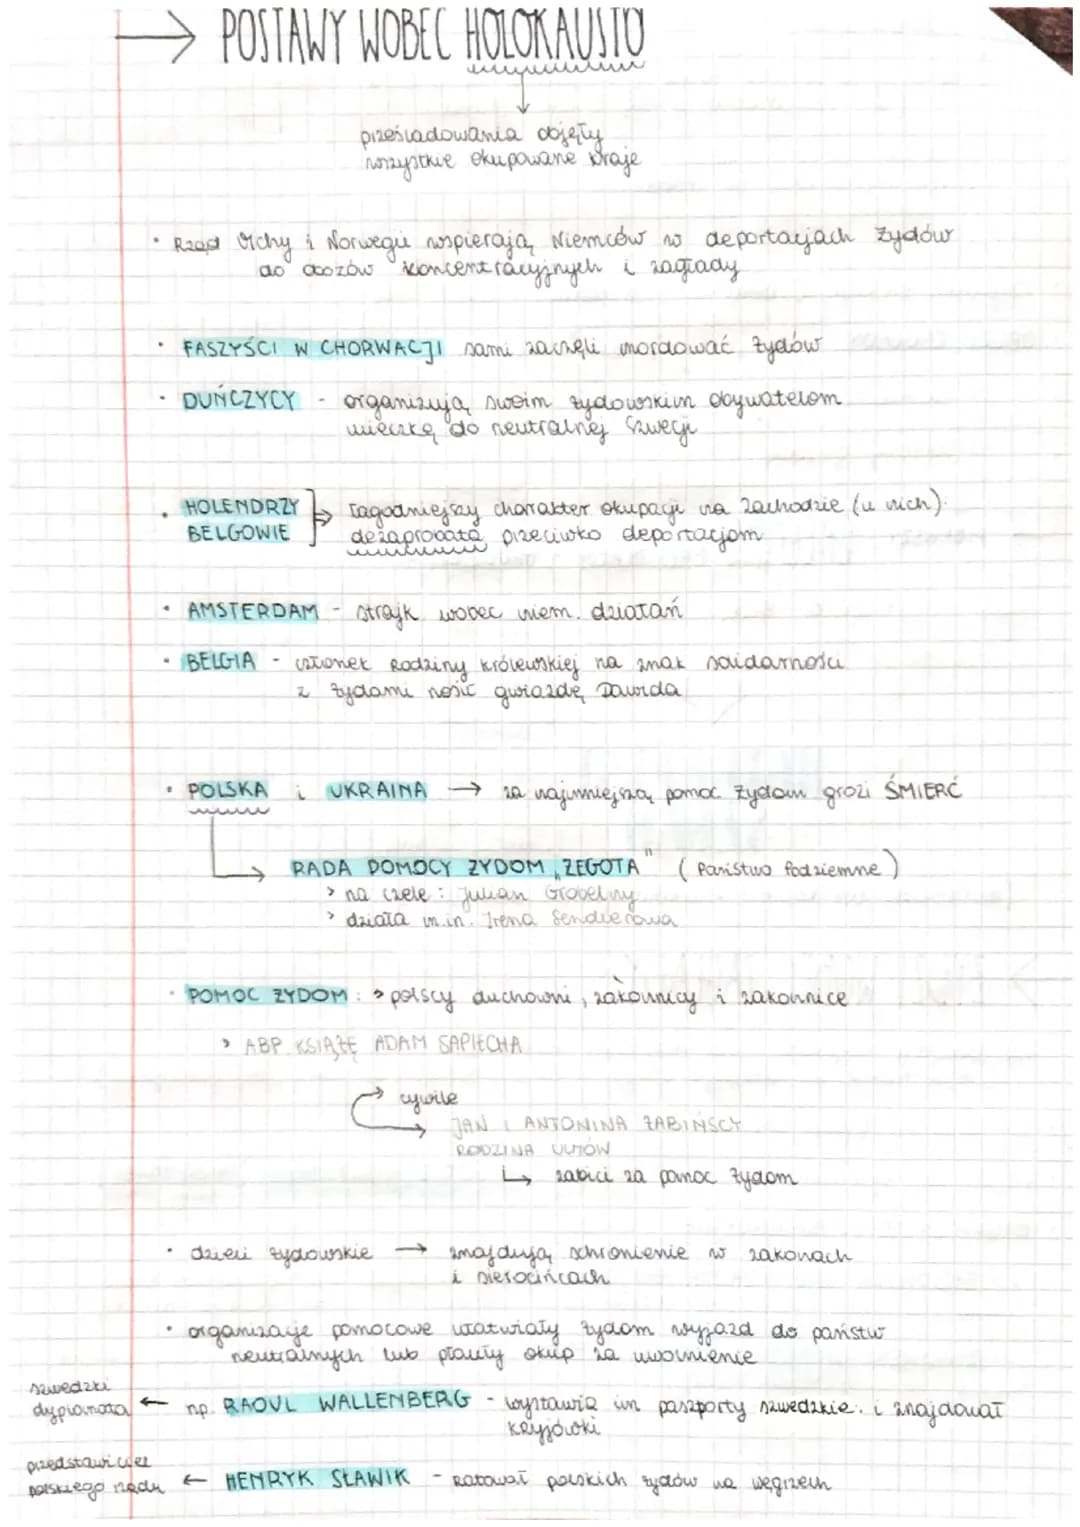 → POSTAWY WOBEC HOLOKAUSTU
prześladowania objęły
wszystkie okupowane kraje
• Rząd Vichy i Norwegii wspierają Niemców w deportacjach Żydów
do obozów koncentracyjnych i zagłady
• FASZYŚCI W CHORWACJI sami zaczęli mordować Żydów
• DUŃCZYCY - organizują swoim żydowskim obywatelom
ucieczkę do neutralnej Szwecji
• HOLENDRZY
BELGOWIE
łagodniejszy charakter okupacji na zachodzie (u nich).
dezaprobata przeciwko deportacjom
• AMSTERDAM - strajk wobec niem. działań
• BELGIA - członek Rodziny królewskiej na znak solidarności
z Żydami nosić gwiazdę Dawida
• POLSKA i UKRAINA → za najmniejszą pomoc Żydom grozi ŚMIERĆ
RADA POMOCY ŻYDOM „ŻEGOTA" (Państwo Podziemne)
> na czele: Julian Grobelny
> działa m.in. Irena Sendlerowa
• POMOC ŻYDOM: > polscy duchowni, zakonnicy i zakonnice
> ABP. KSIĄŻĘ ADAM SAPIECHA
cywile
JAN I ANTONINA ŻABIŃSCY
RODZINA ULMÓW
↳ zabici za pomoc Żydom
• dzieci żydowskie → znajdują schronienie w zakonach
i sierocińcach
• organizacje pomocowe ułatwiały Żydom wyjazd do państw
neutralnych lub płaciły okup za uwolnienie
szwedzki
dyplomata ← np. RAOUL WALLENBERG - wystawia im paszporty szwedzkie. i znajdował
kryjówki
przedstawiciel
polskiego rządu ← HENRYK SŁAWIK - Ratował polskich żydów na węgrzech